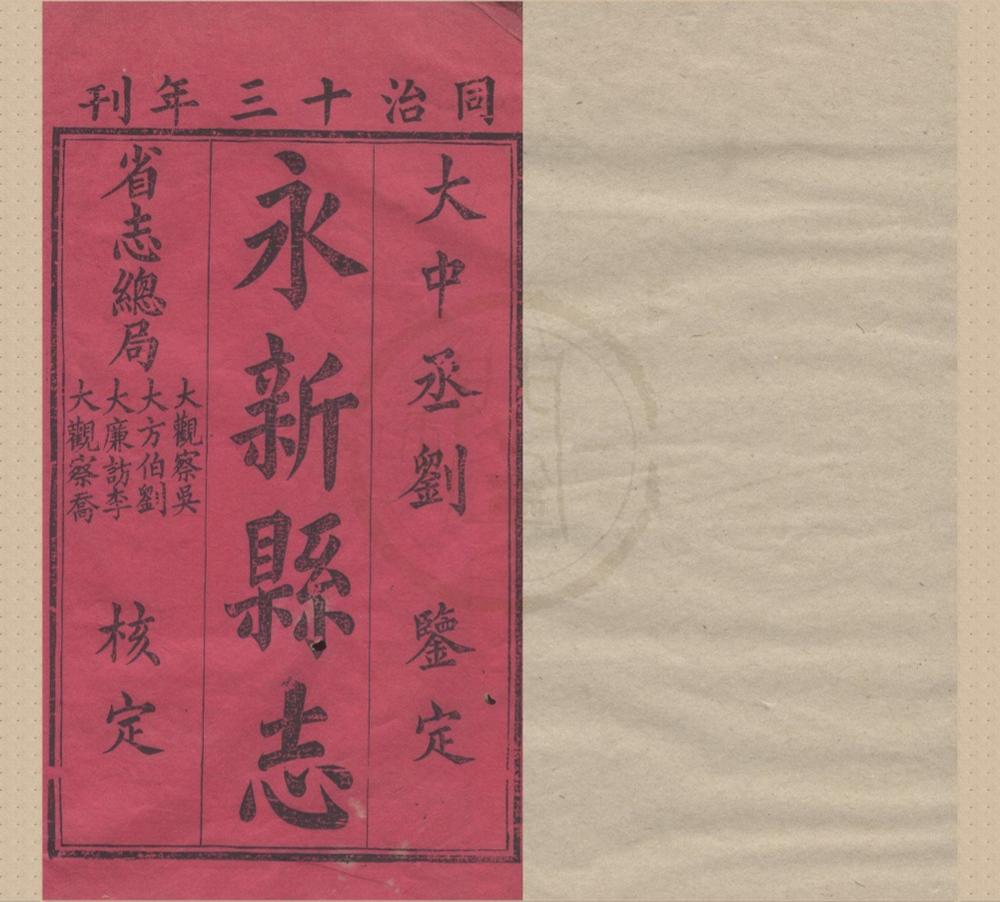 同治十三年刊
大中丞劉鑒定
永新縣志
省志總局
大觀察吳
大方伯劉
大廉訪李
大觀察喬
核定